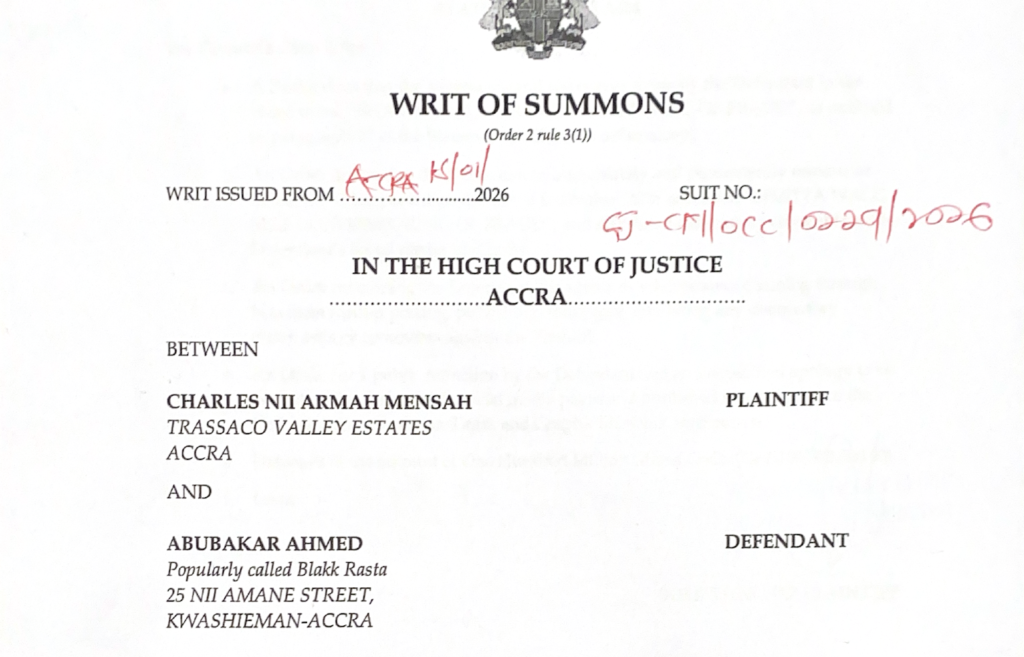 WRIT OF SUMMONS
(Order 2 rule 3(1))
WRIT ISSUED FROM ACCRA 15/01/ 2026
SUIT NO.:
GJ-CM/OCC/0229/2026
IN THE HIGH COURT OF JUSTICE
ACCRA
BETWEEN
CHARLES NII ARMAH MENSAH PLAINTIFF
TRASSACO VALLEY ESTATES
ACCRA
AND
ABUBAKAR AHMED DEFENDANT
Popularly called Blakk Rasta
25 NII AMANE STREET,
KWASHIEMAN-ACCRA